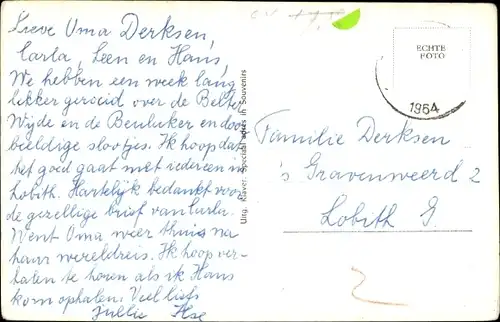 Lieve Oma Derksen,
Carla, Leen en Hans,
We hebben een week lang
lekker geroeid over de Belter
Wijde en de Beulaker en door
beeldige slootjes. Ik hoop dat
het goed gaat met iedereen in
Lobith. Hartelijk bedankt voor
de gezellige brief van Carla.
Went Oma weer thuis na
haar wereldreis. Ik hoop ver-
halen te horen als ik Hans
kom ophalen. Veel liefs
Jullie Ilse
Uitg. Klaver, Specialiteiten in Souvenirs
ECHTE
FOTO
1964
Familie Derksen
's Gravenweerd 2
Lobith G.